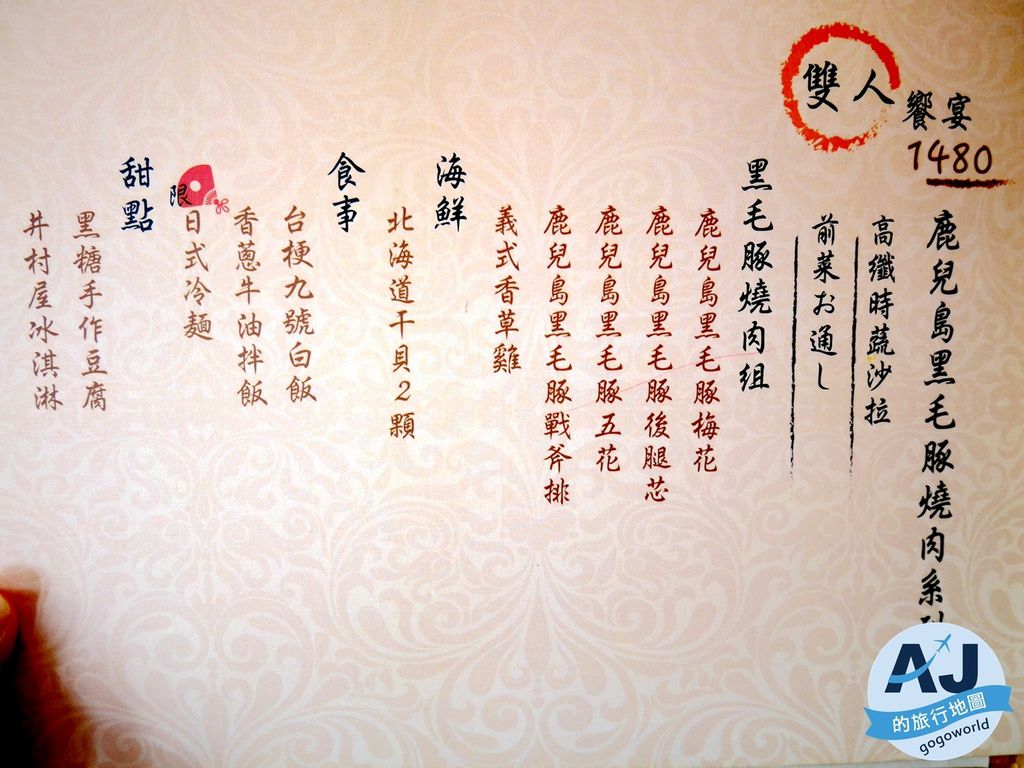 雙人
饗宴
1480
鹿兒島黑毛豚燒肉系列
高纖時蔬沙拉
前菜お通し
黑毛豚燒肉組
鹿兒島黑毛豚梅花
鹿兒島黑毛豚後腿芯
鹿兒島黑毛豚五花
鹿兒島黑毛豚戰斧排
義式香草雞
海鮮
北海道干貝2顆
食事
台梗九號白飯
香蔥牛油拌飯
限
日式冷麵
甜點
黑糖手作豆腐
井村屋冰淇淋
AJ
的旅行地圖
gogoworld